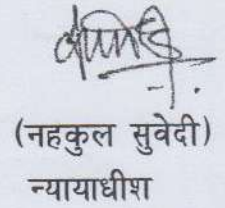 (नहकुल सुवेदी)
न्यायाधीश